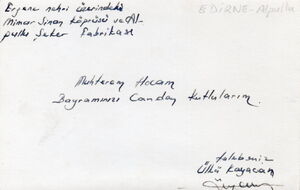 Ergene nehri üzerindeki
Mimar Sinan köprüsü ve Al-
pullu Şeker Fabrikası
EDİRNE-Alpullu
Muhterem Hocam
Bayramınızı Candan Kutlularım.
talebeniz
Ülkü Kayacan